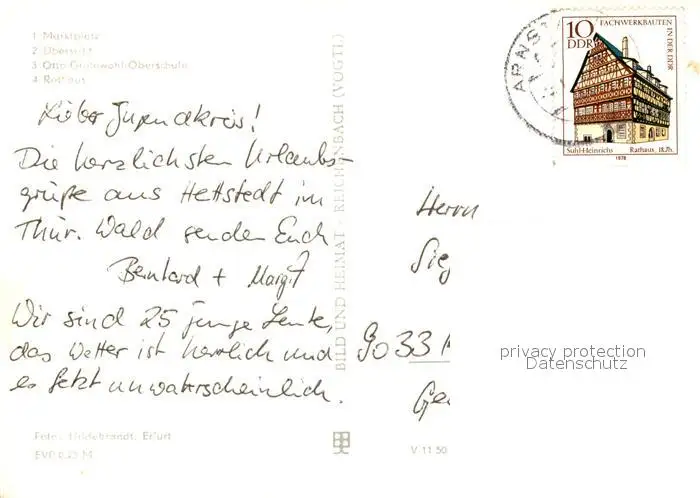 1 Marktplatz
2 Übersicht
3 Otto-Grotewohl-Oberschule
4 Rathaus
Lieber Jugendkreis!
Die herzlichsten Urlaubs-
grüße aus Hettstedt im
Thür. Wald senden Euch
Bernhard + Margit
Wir sind 25 junge Leute,
das Wetter ist herrlich und
es fetzt unwahrscheinlich.
Foto: Hildebrandt, Erfurt
EVP 0,25 M
BILD UND HEIMAT · REICHENBACH (VOGTL.)
V 11 50
ARNST
10
DDR
FACHWERKBAUTEN
IN DER DDR
Suhl-Heinrichs Rathaus, 18.Jh.
1978
Herrn
Sieg
9033
Ge
privacy protection
Datenschutz